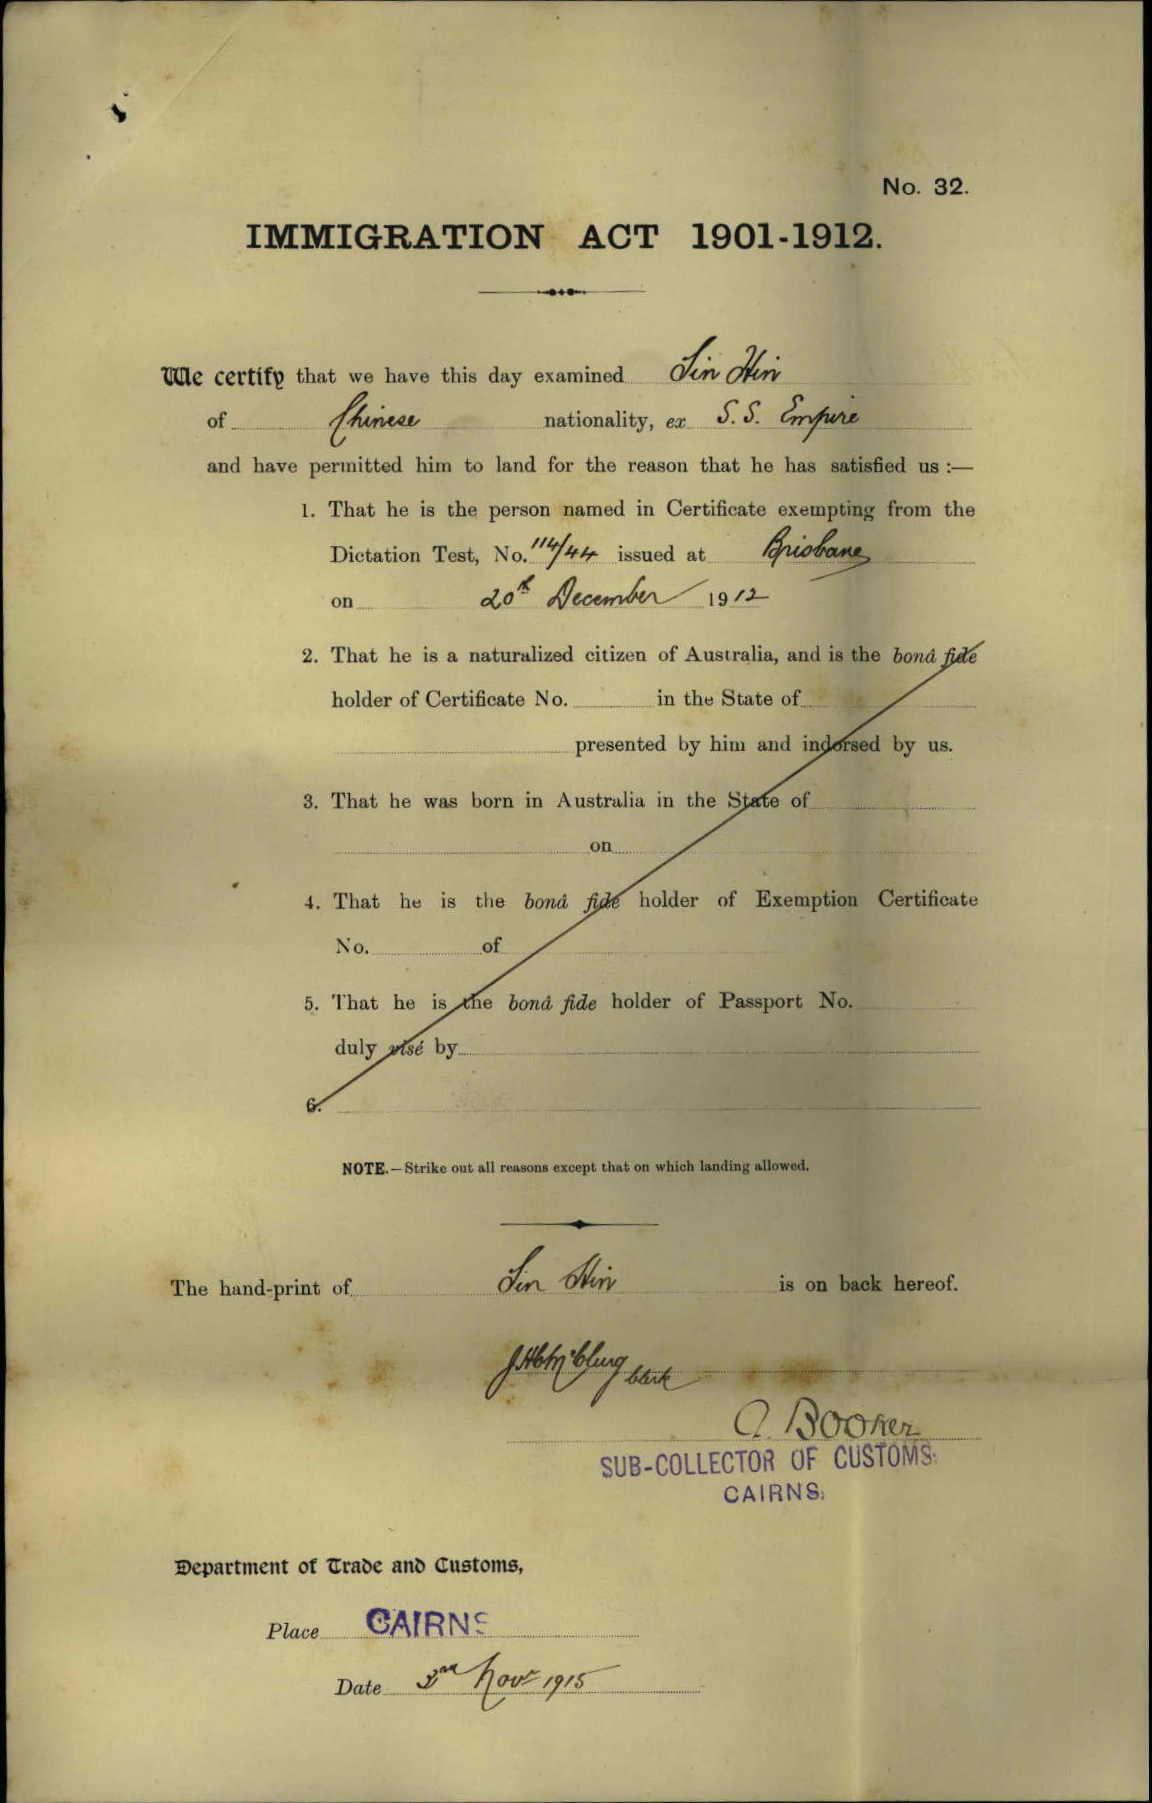 No. 32.
IMMIGRATION ACT 1901-1912.
We certify that we have this day examined Sin Hin
of Chinese nationality, ex S.S. Empire
and have permitted him to land for the reason that he has satisfied us :—
1. That he is the person named in Certificate exempting from the
Dictation Test, No. 114/44 issued at Brisbane
on 20th December 1912
2. That he is a naturalized citizen of Australia, and is the bonâ fide
holder of Certificate No. in the State of
presented by him and indorsed by us.
3. That he was born in Australia in the State of
on
4. That he is the bonâ fide holder of Exemption Certificate
No. of
5. That he is the bonâ fide holder of Passport No.
duly visé by
6.
NOTE.—Strike out all reasons except that on which landing allowed.
The hand-print of Sin Hin is on back hereof.
McClurg Clerk
A. Booker
SUB-COLLECTOR OF CUSTOMS.
CAIRNS.
Department of Trade and Customs,
Place CAIRNS
Date 3rd Novr 1915